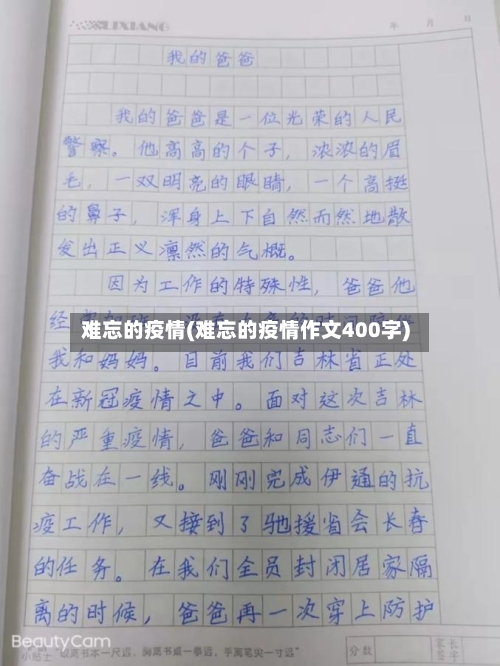 LIXIANG
年 月 日
我的爸爸
我的爸爸是一位光荣的人民
警察。他高高的个子，浓浓的眉
毛，一双明亮的眼睛，一个高挺
的鼻子，浑身上下自然而然地散
发出正义凛然的气概。
因为工作的特殊性，爸爸他
经
难忘的疫情(难忘的疫情作文400字)
我和妈妈。目前我们吉林省正处
在新冠疫情之中。面对这次吉林
的严重疫情，爸爸和同志们一直
奋战在一线。刚刚完成伊通的抗
疫工作，又接到了驰援省会长春
的任务。在我们全员封闭居家隔
离的时候，爸爸再一次穿上防护
BeautyCam
小贴士 眼离书本一尺远，胸离书桌一拳远，手离笔尖一寸远"
分数
家长
签字